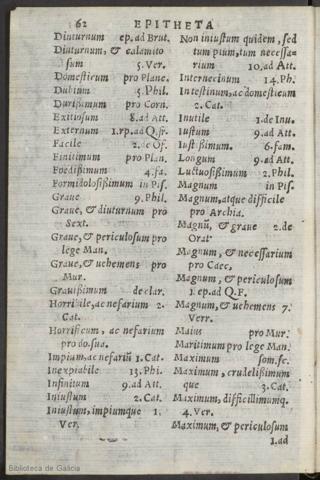 62 EPITHETA
Diuturnum ep. ad Brut.
Diuturnum, & calamito
sum 5. Ver.
Domesticum pro Planc.
Dubium 5. Phil.
Durissimum pro Corn.
Exitiosum 8. ad Att.
Externum 1. rp. ad Q. fr.
Facile 2. de Of.
Finitimum pro Plan.
Foedissimum 4. fa.
Formidolosissimum in Pis.
Graue 9. Phil.
Graue, & diuturnum pro
Sext.
Graue, & periculosum pro
lege Man.
Graue, & uehemens pro
Mur.
Grauissimum de clar.
Horribile, ac nefarium 2.
Cat.
Horrificum, ac nefarium
pro do. sua.
Impium, ac nefariũ 1. Cat.
Inexpiabile 13. Phi.
Infinitum 9. ad Att.
Iniustum 2. Cat.
Iniustum, impiumque 1.
Ver.
Non iniustum quidem, sed
tum pium, tum necessa-
rium 10. ad Att.
Internecinum 14. Ph.
Intestinum, ac domesticum
2. Cat.
Inutile 1. de Inu.
Iustum 9. ad Att.
Iustissimum. 6. fam.
Longum 9. ad Att.
Luctuosissimum 2. Phil.
Magnum in Pis.
Magnum, atque difficile
pro Archia.
Magnũ, & graue 2. de
Orat
Magnum, & necessarium
pro Caec,
Magnum, & periculosum
1. ep. ad Q. F.
Magnum, & uehemens 7.
Verr.
Maius pro Mur.
Maritimum pro lege Man.
Maximum som. sc.
Maximum, crudelissimum
que 3. Cat.
Maximum, difficillimumq.
4. Ver.
Maximum, & periculosum
1. ad
Biblioteca de Galicia